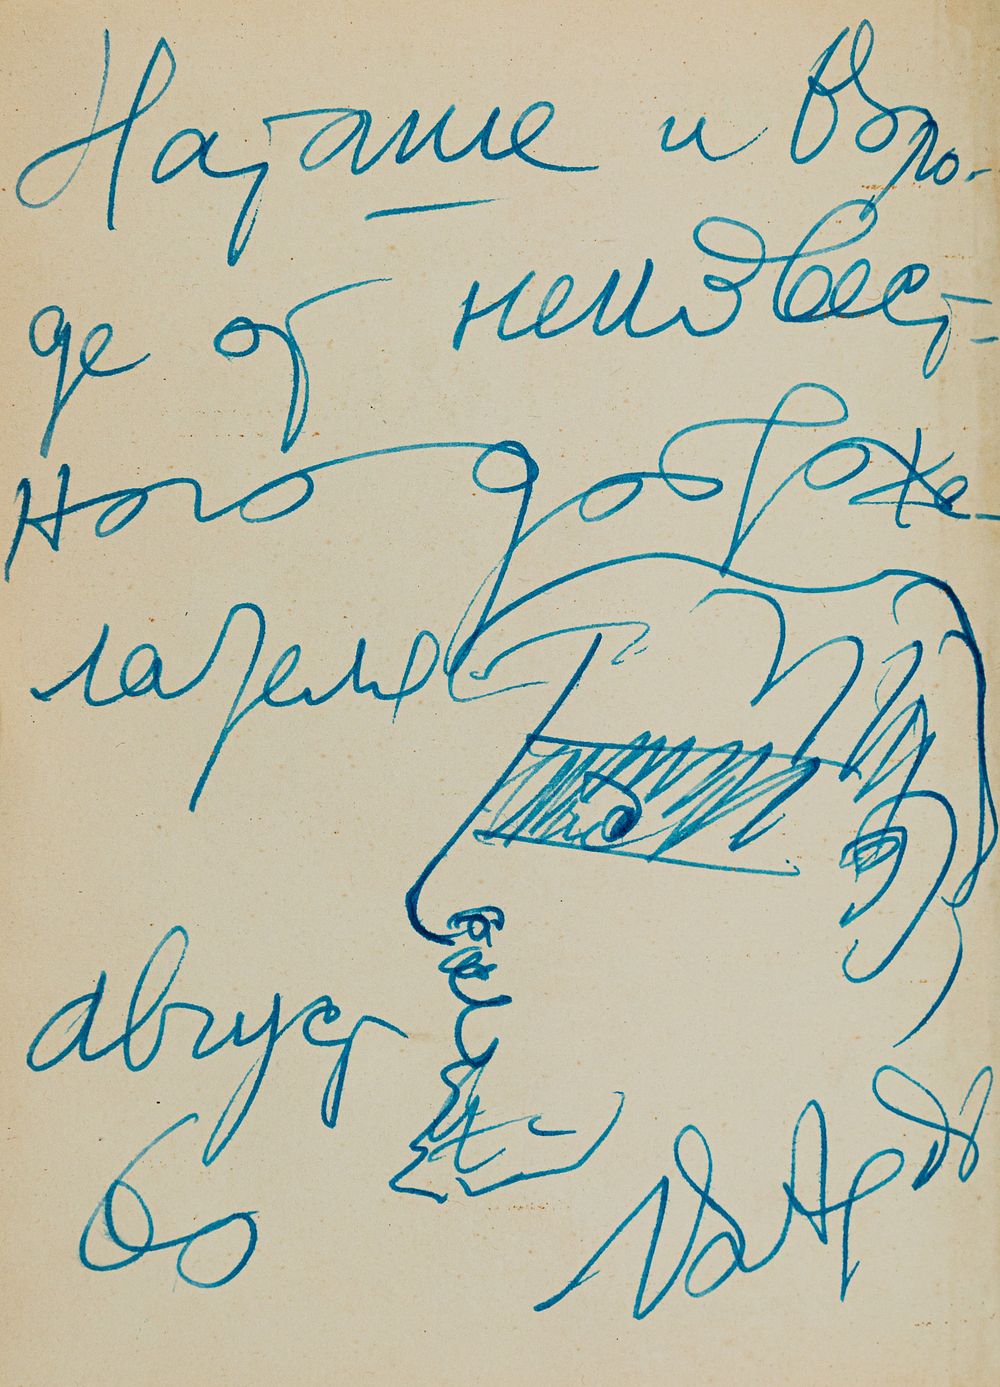 Наташе и Воло-
де от неизвест-
ного доброже-
лателя
август
60